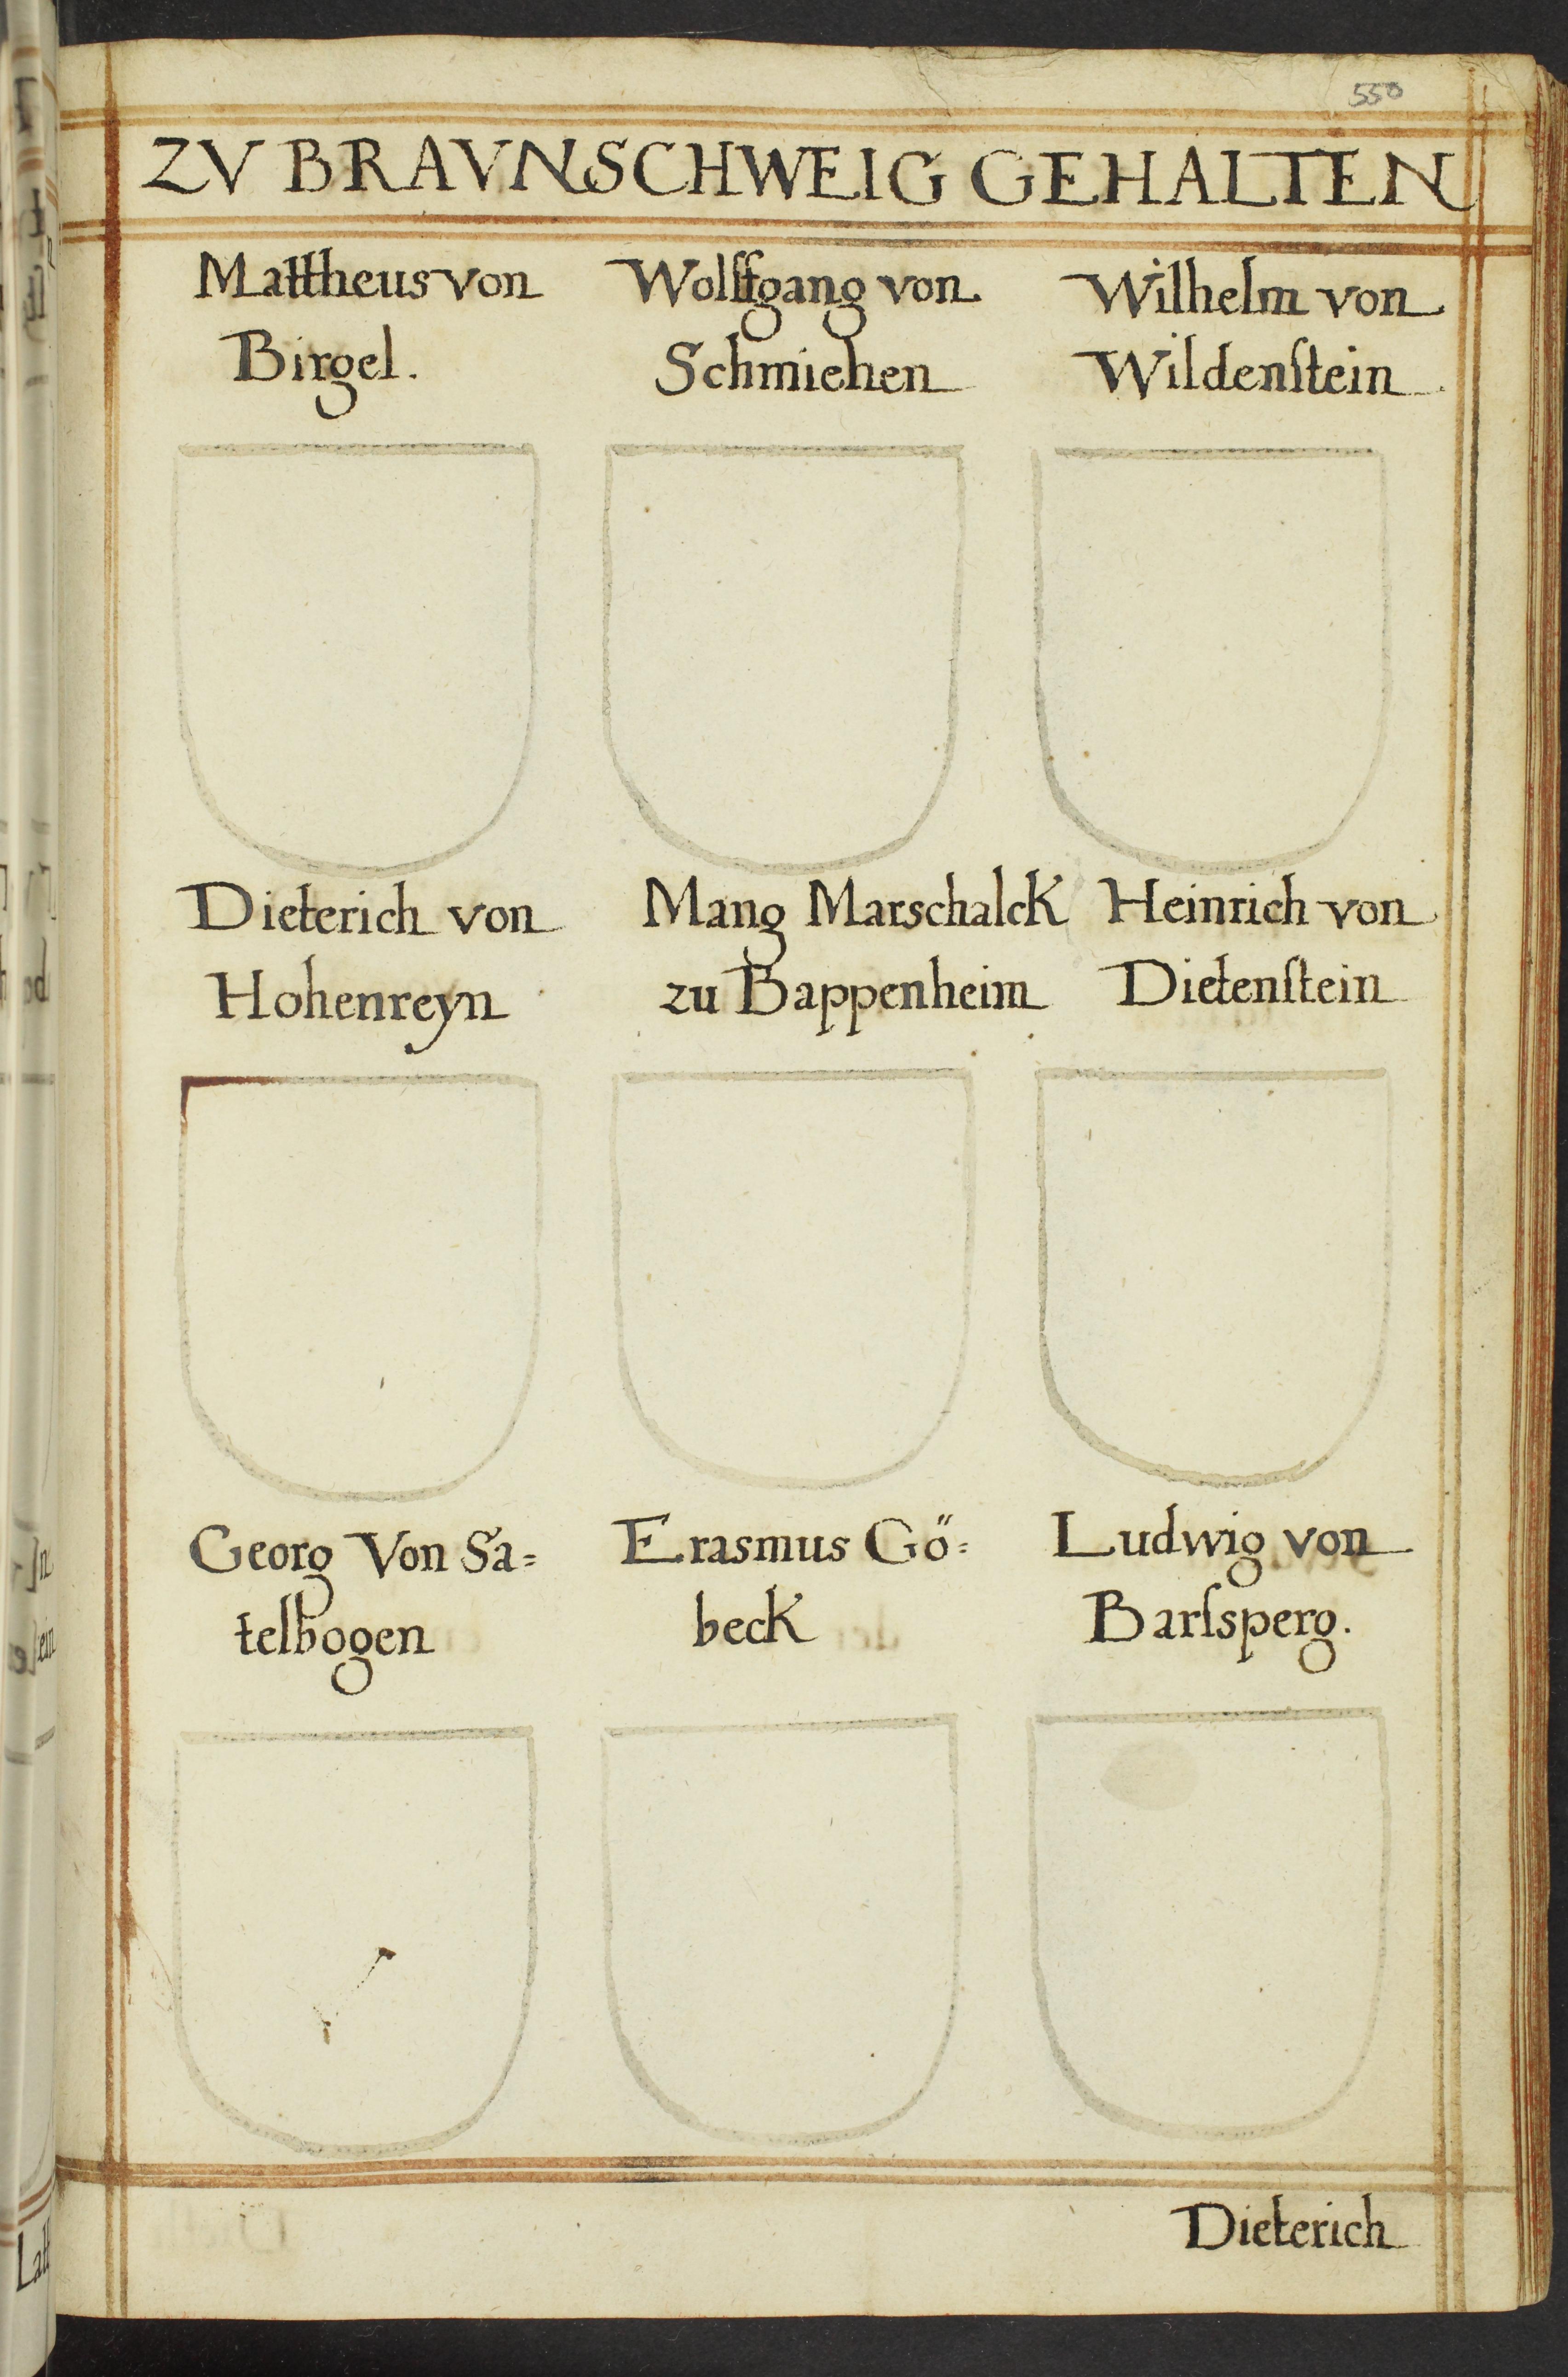 550
ZV BRAVNSCHWEIG GEHALTEN
Mattheus von
Birgel.
Wolffgang von
Schmiehen
Wilhelm von
Wildenſtein
Dieterich von
Hohenreyn
Mang Marschalck
zu Bappenheim
Heinrich von
Dietenſtein
Georg Von Sa=
telbogen
Erasmus Gö=
beck
Ludwig von
Barſsperg.
Dieterich